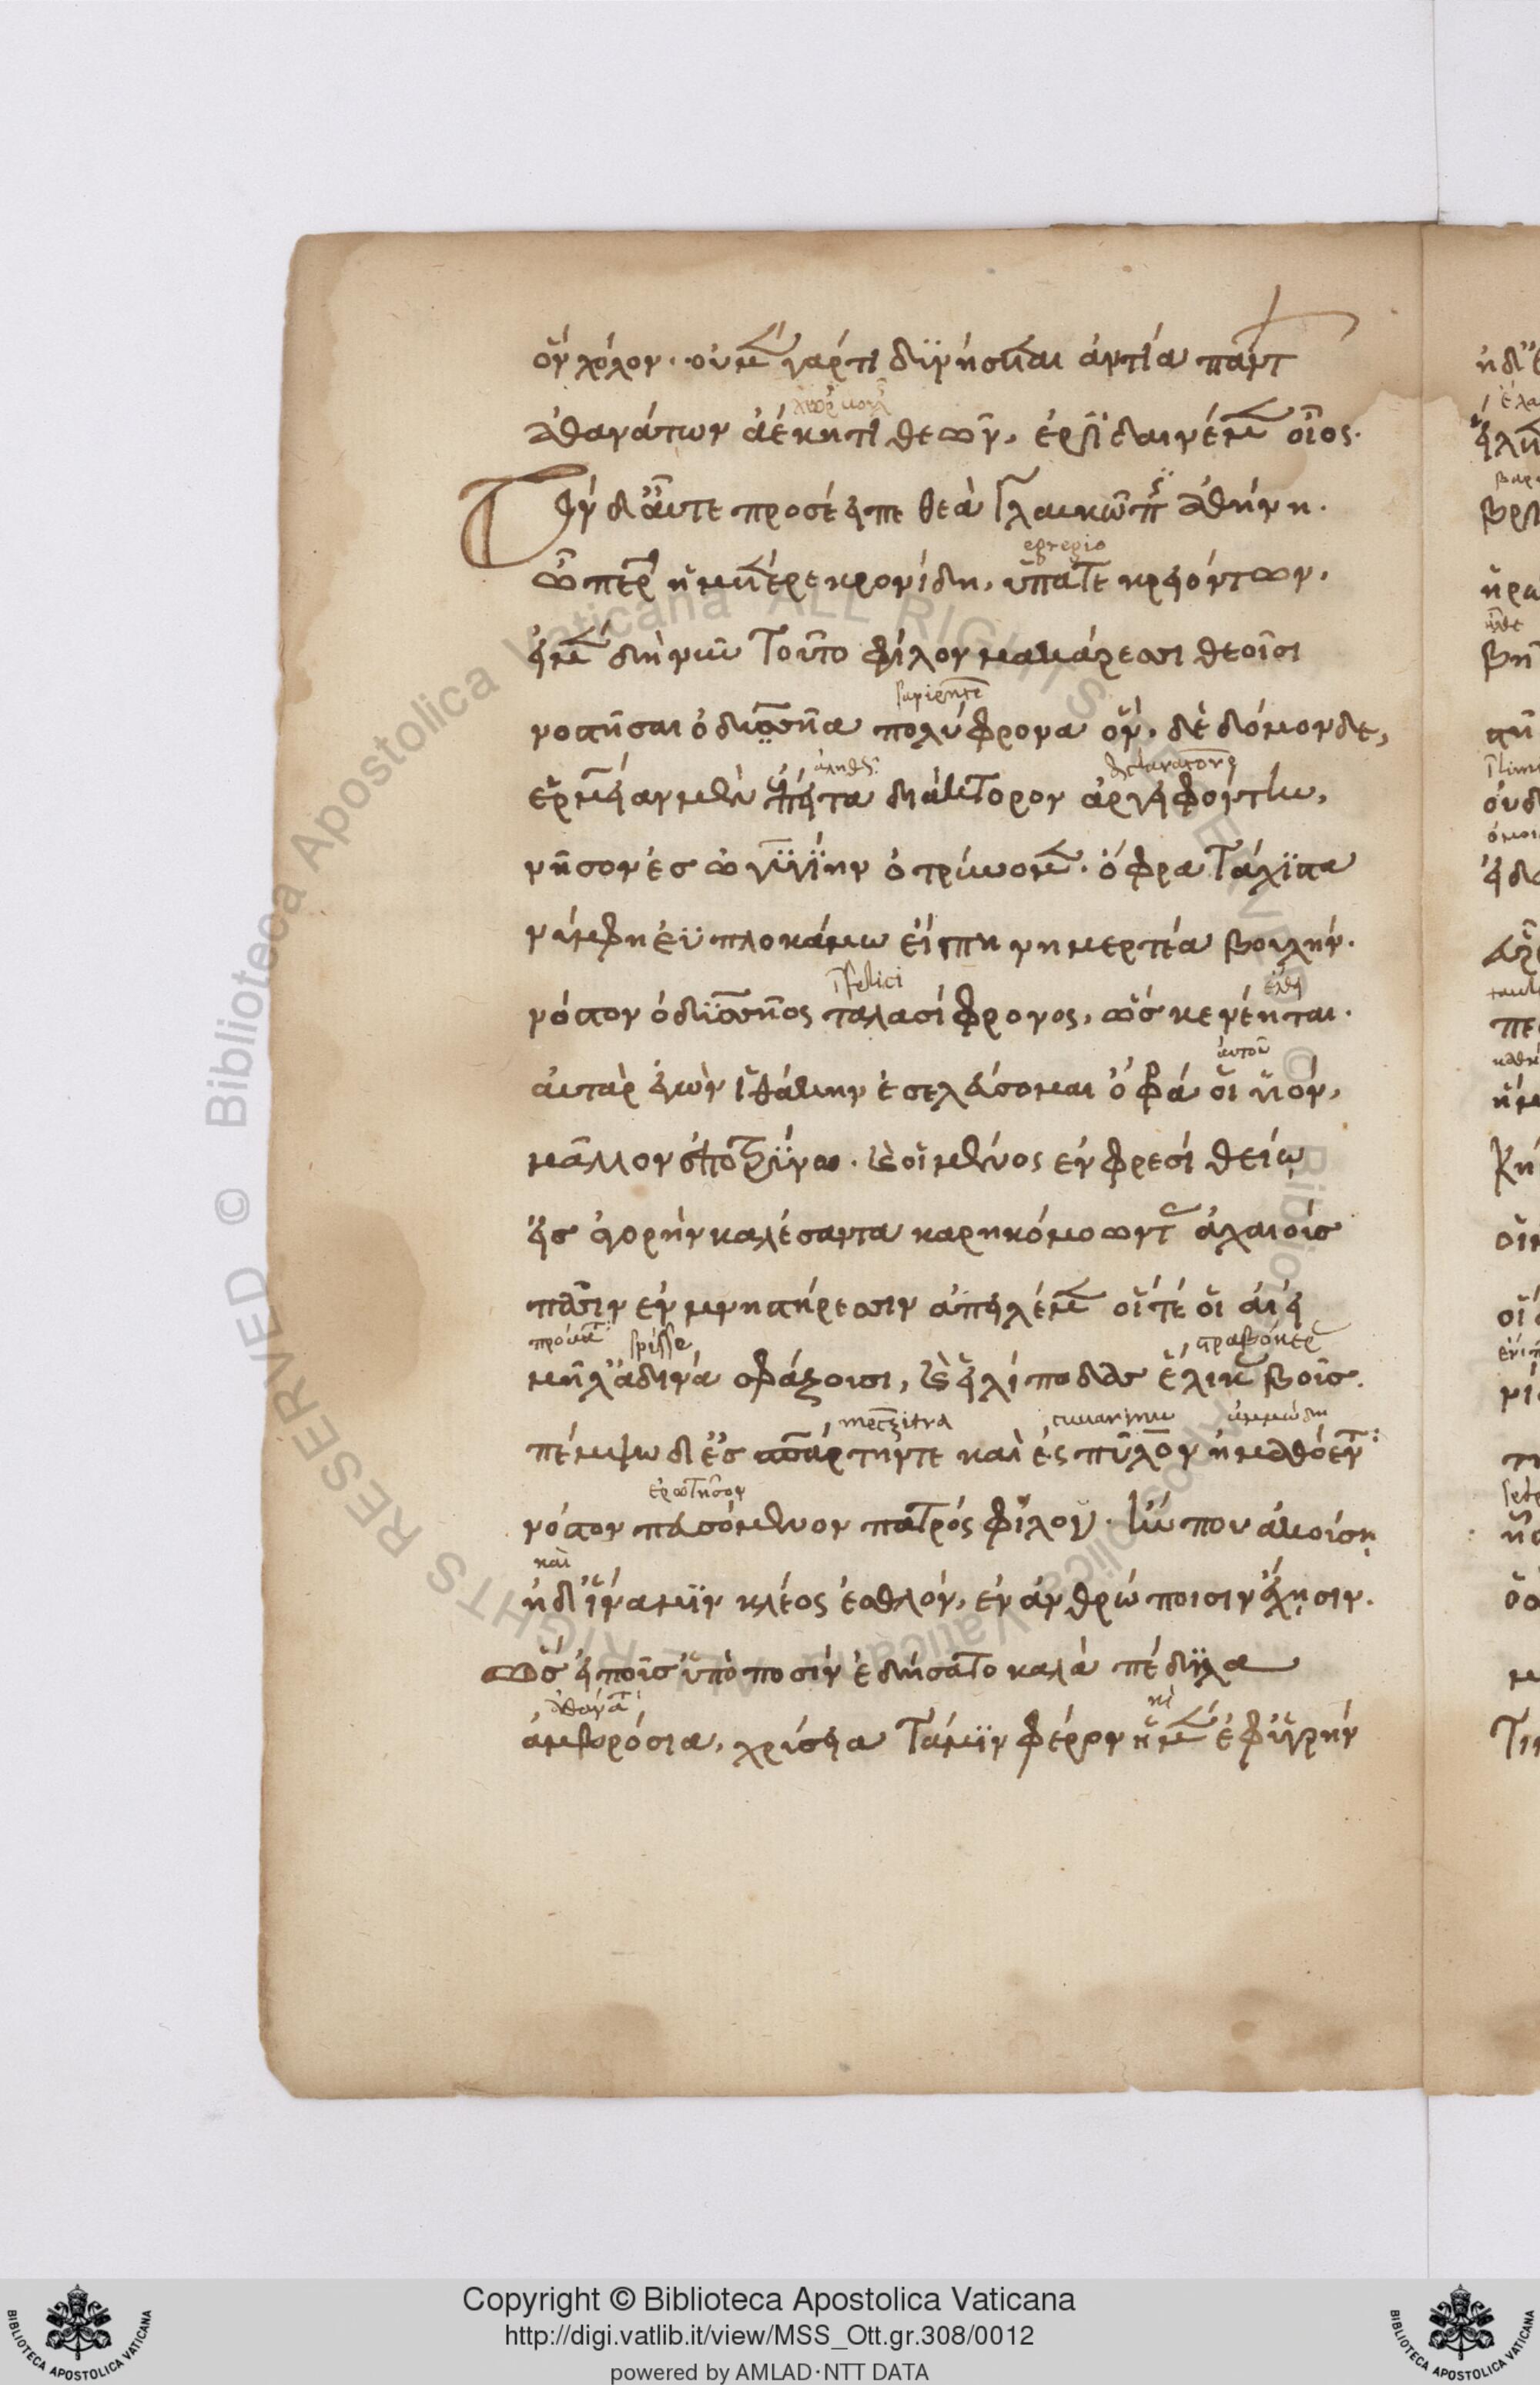 ὃν χόλον. οὐ μὲν γάρ τι δυνήσεται ἀντία πάντων
ἀθανάτων ἀέκητι θεῶν, ἐριδαινέμεν οἶος.
Τὸν δ' αὖτε προσέειπε θεὰ γλαυκῶπις ἀθήνη.
egregio
ὦ πάτερ ἡμέτερε κρονίδη, ὕπατε κρειόντων,
εἰ μὲν δὴ νῦν τοῦτο φίλον μακάρεσσι θεοῖσι
sapiente
νοστῆσαι ὀδυσσῆα πολύφρονα ὃν δὲ δόμονδε,
ἑρμείαν μὲν ἔπειτα διάκτορον ἀργειφόντην,
νῆσον ἐς ὠγυγίην ὀτρύνομεν. ὄφρα τάχιστα
νύμφη ἐϋπλοκάμω εἴπη νημερτέα βουλήν.
ἔλθη
νόστον ὀδυσσῆος ταλασίφρονος, ὥς κε νέηται.
αὐτοῦ
αὐτὰρ ἐγὼν ἰθάκην ἐσελεύσομαι ὄφρά οἱ υἱόν,
μᾶλλον ἐποτρύνω. καὶ οἱ μένος ἐν φρεσὶ θείω
εἰς ἀγορὴν καλέσαντα καρηκομόωντας ἀχαιοὺς
πᾶσιν ἐν μνηστήρεσσιν ἀπειπέμεν οἵ τέ οἱ αἰεὶ
spisse
μῆλ' ἁδινὰ σφάζουσι, καὶ εἰλίποδας ἕλικας βοῦς.
πέμψω δ' ἐς σπάρτην τε καὶ ἐς πύλον ἠμαθόεντα
ἐρωτήσον
νόστον πευσόμενον πατρὸς φίλου. ἤν που ἀκούση
καὶ
ἠδ' ἵνα μιν κλέος ἐσθλὸν, ἐν ἀνθρώποισιν ἔχησιν.
ὣς εἰποῦσ' ὑπὸ ποσὶν ἐδήσατο καλὰ πέδιλα
ἀμβρόσια, χρύσεια τά μιν φέρον ἠμὲν ἐφ' ὑγρὴν
Copyright © Biblioteca Apostolica Vaticana
http://digi.vatlib.it/view/MSS_Ott.gr.308/0012
powered by AMLAD·NTT DATA
BIBLIOTECA APOSTOLICA VATICANA
BIBLIOTECA APOSTOLICA VATICANA